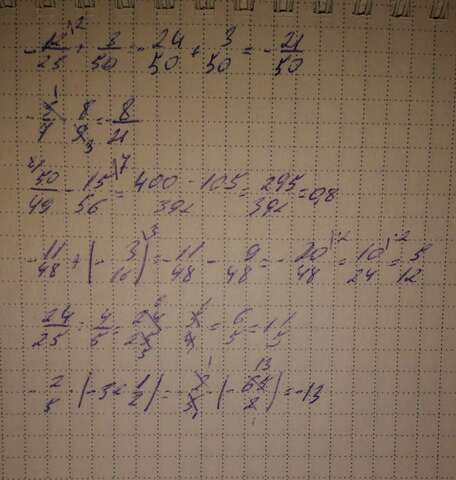 -12/25 + 3/50 = -24/50 + 3/50 = -21/50
8/9 = 8/21
50/49 - 15/56 = 400 - 105/392 = 295/392 = 0,8
-11/48 + (-3/16) = -11/48 - 9/48 = -20/48 = 10/24 = 5/12
24/25 : 4/5 = 24/25 · 5/4 = 6/5 = 1 1/5
-2/5 · (-32 1/2) = -2/5 · (-65/2) = -13